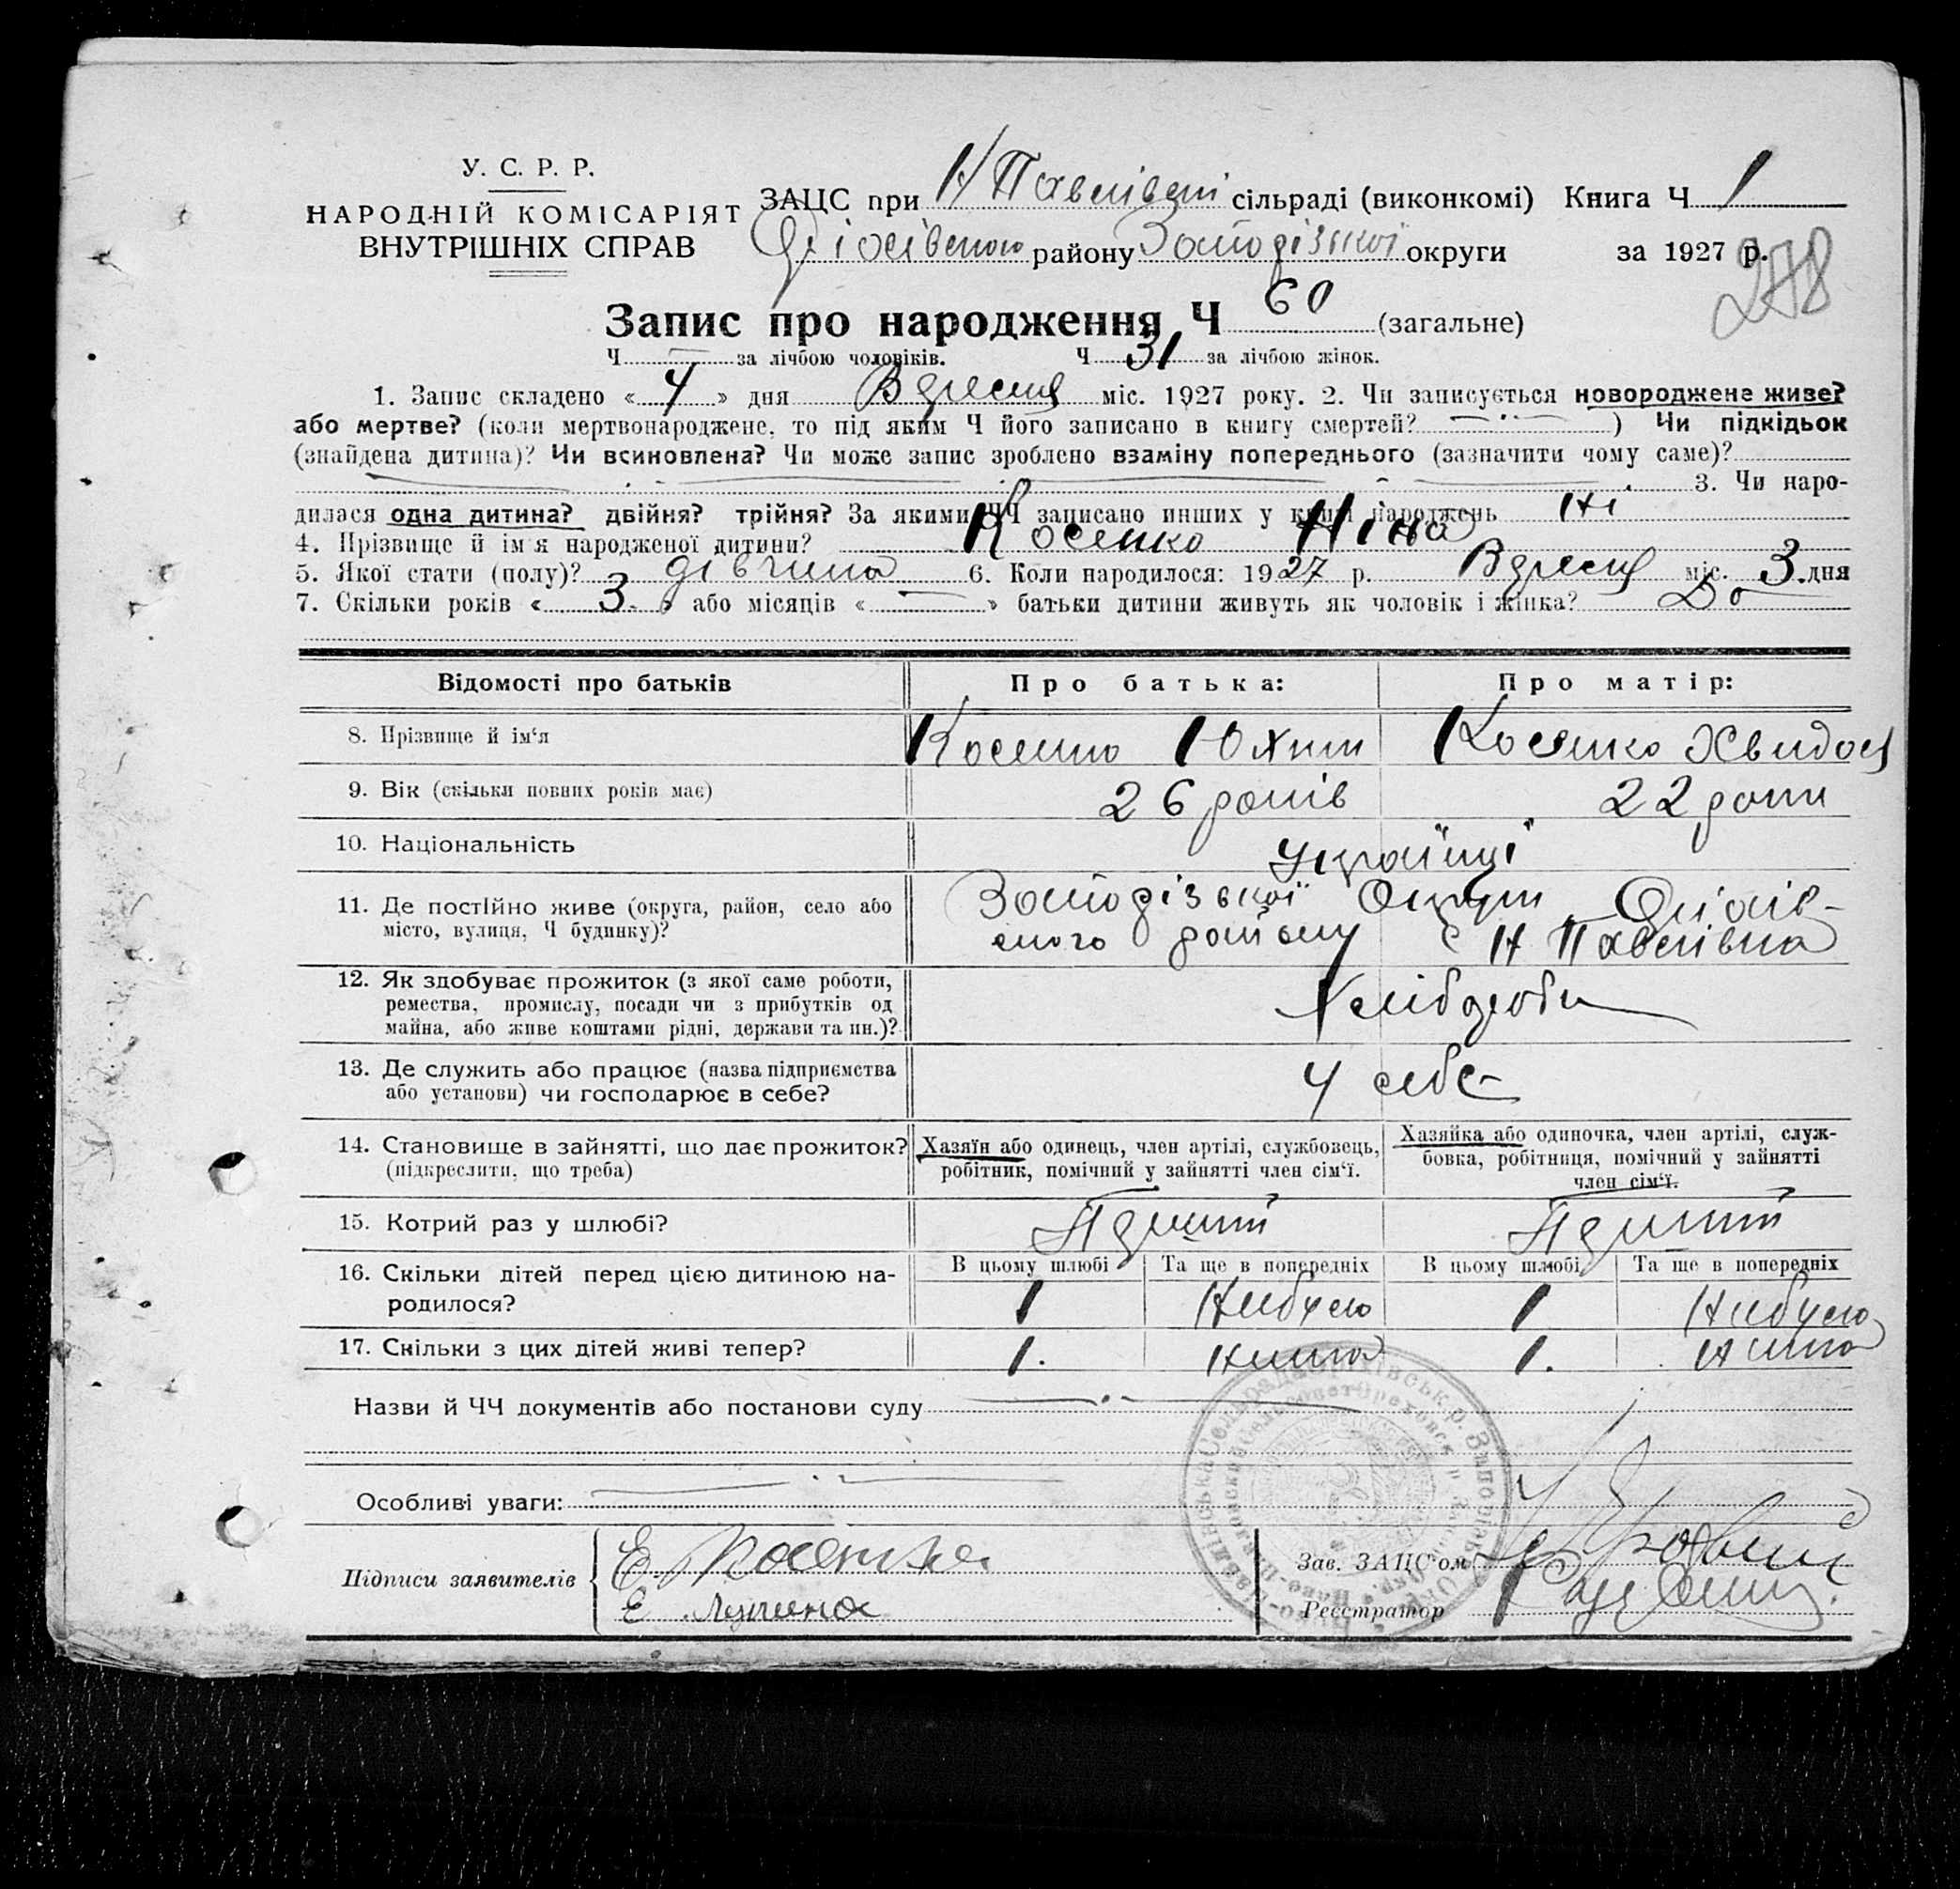 У. С. Р. Р.
НАРОДНІЙ КОМІСАРІЯТ
ВНУТРІШНІХ СПРАВ
ЗАЦС при Н Павлівці сільраді (виконкомі) Книга Ч 1
району Запорізької округи за 1927 р.
278
Запис про народження Ч 60 (загальне)
Ч — за лічбою чоловіків. Ч 31 за лічбою жінок.
1. Запис складено «4» дня Вересня міс. 1927 року. 2. Чи записується новороджене живе?
або мертве? (коли мертвонароджене, то під яким Ч його записано в книгу смертей? ) Чи підкідьок
(знайдена дитина)? Чи всиновлена? Чи може запис зроблено взаміну попереднього (зазначити чому саме)?
3. Чи наро-
дилася одна дитина? двійня? трійня? За якими ЧЧ записано инших у книзі народжень Ні
4. Прізвище й ім'я народженої дитини? Косенко Ніна
5. Якої стати (полу)? дівчина 6. Коли народилося: 1927 р. Вересня міс. 3 дня
7. Скільки років «3» або місяців «—» батьки дитини живуть як чоловік і жінка?
Відомості про батьків Про батька: Про матір:
8. Прізвище й ім'я Косенко Юхим Косенко Хведося
9. Вік (скільки повних років має) 26 років 22 роки
10. Національність Українці
11. Де постійно живе (округа, район, село або Запорізької Округи
місто, вулиця, Ч будинку)? ського району с Н Павлівка
12. Як здобуває прожиток (з якої саме роботи,
ремества, промислу, посади чи з прибутків од Хлібороби
майна, або живе коштами рідні, держави та ин.)?
13. Де служить або працює (назва підприємства
або установи) чи господарює в себе? У себе
14. Становище в зайнятті, що дає прожиток? Хазяїн або одинець, член артілі, службовець, Хазяйка або одиночка, член артілі, служ-
(підкреслити, що треба) робітник, помічний у зайнятті член сім'ї. бовка, робітниця, помічний у зайнятті
член сім'ї.
15. Котрий раз у шлюбі? Перший Перший
16. Скільки дітей перед цією дитиною на- В цьому шлюбі Та ще в попередніх В цьому шлюбі Та ще в попередніх
родилося? 1 Небуло 1 Небуло
17. Скільки з цих дітей живі тепер? 1. Нима 1. Нима
Назви й ЧЧ документів або постанови суду
Особливі уваги:
Підписи заявителів Е. Косенко
Е
Зав. ЗАЦС'ом
Реєстратор